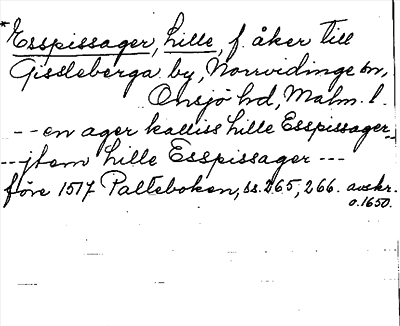 *Esspissager, Lille, f. åker till
Gissleberga by, Norrvidinge sn,
Onsjö hd, Malm. l.
-- en ager kalliss Lille Esspissager --
--- jtem Lille Esspissager ---
före 1517 Palteboken, ss. 265, 266. avskr.
o. 1650.